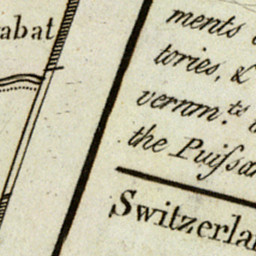 abat
ments
tories, &
vernm.ts
the Puiſsa
Switzerla